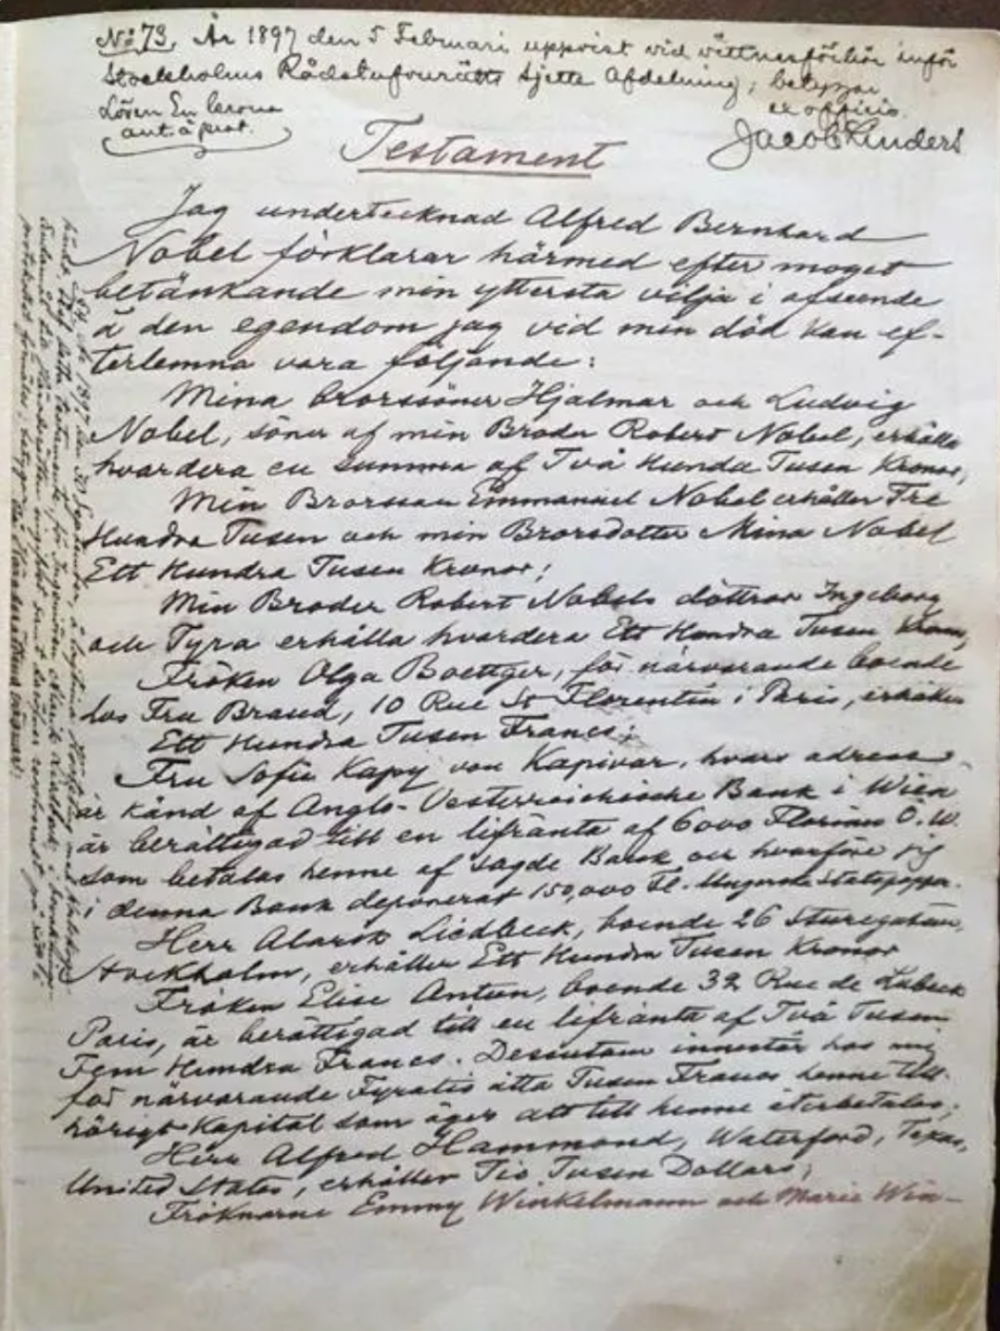 No 73. År 1897 den 5 Februari uppvist vid vittnesförhör inför
Stockholms Rådstufvurätts sjette Afdelning; betygar
Lösen En krona
ex officio.
Testament
Jag undertecknad Alfred Bernhard
Nobel förklarar härmed efter moget
betänkande min yttersta vilja i afseende
å den egendom jag vid min död kan ef-
terlemna vara följande:
Mina brorssöner Hjalmar och Ludvig
Nobel, söner af min Broder Robert Nobel, erhålla
hvardera en summa af Två Hundra Tusen Kronor,
Min Brorson Emmanuel Nobel erhåller Tre
Hundra Tusen och min Brorsdotter Mina Nobel
Ett Hundra Tusen Kronor;
Min Broder Robert Nobels döttrar Ingeborg
och Tyra erhålla hvardera Ett Hundra Tusen Kronor,
Fröken Olga Boettger, för närvarande boende
hos Fru Brand, 10 Rue St Florentin i Paris, erhåller
Ett Hundra Tusen Francs;
Fru Sofie Kapy von Kapivar, hvars adress
är känd af Anglo-Oesterreichische Bank i Wien
är berättigad till en lifränta af 6000 Florins Ö.W.
som betalas henne af sagde Bank och hvarföre jag
i denna Bank deponerat 150,000 Fl. i Ungerska Statspapper.
Herr Alarik Liedbeck, boende 26 Sturegatan,
Stockholm, erhåller Ett Hundra Tusen Kronor
Fröken Elise Antun, boende 32 Rue de Lubeck
Paris, är berättigad till en lifränta af Två Tusen
Fem Hundra Francs. Dessutom innestår hos mig
för närvarande Fyratio åtta Tusen Francs henne till-
hörigt Kapital som äger att till henne återbetalas;
Herr Alfred Hammond, Waterford, Texas,
United States, erhåller Tio Tusen Dollars;
Fröknarne Emmy Winkelmann och Marie Win-